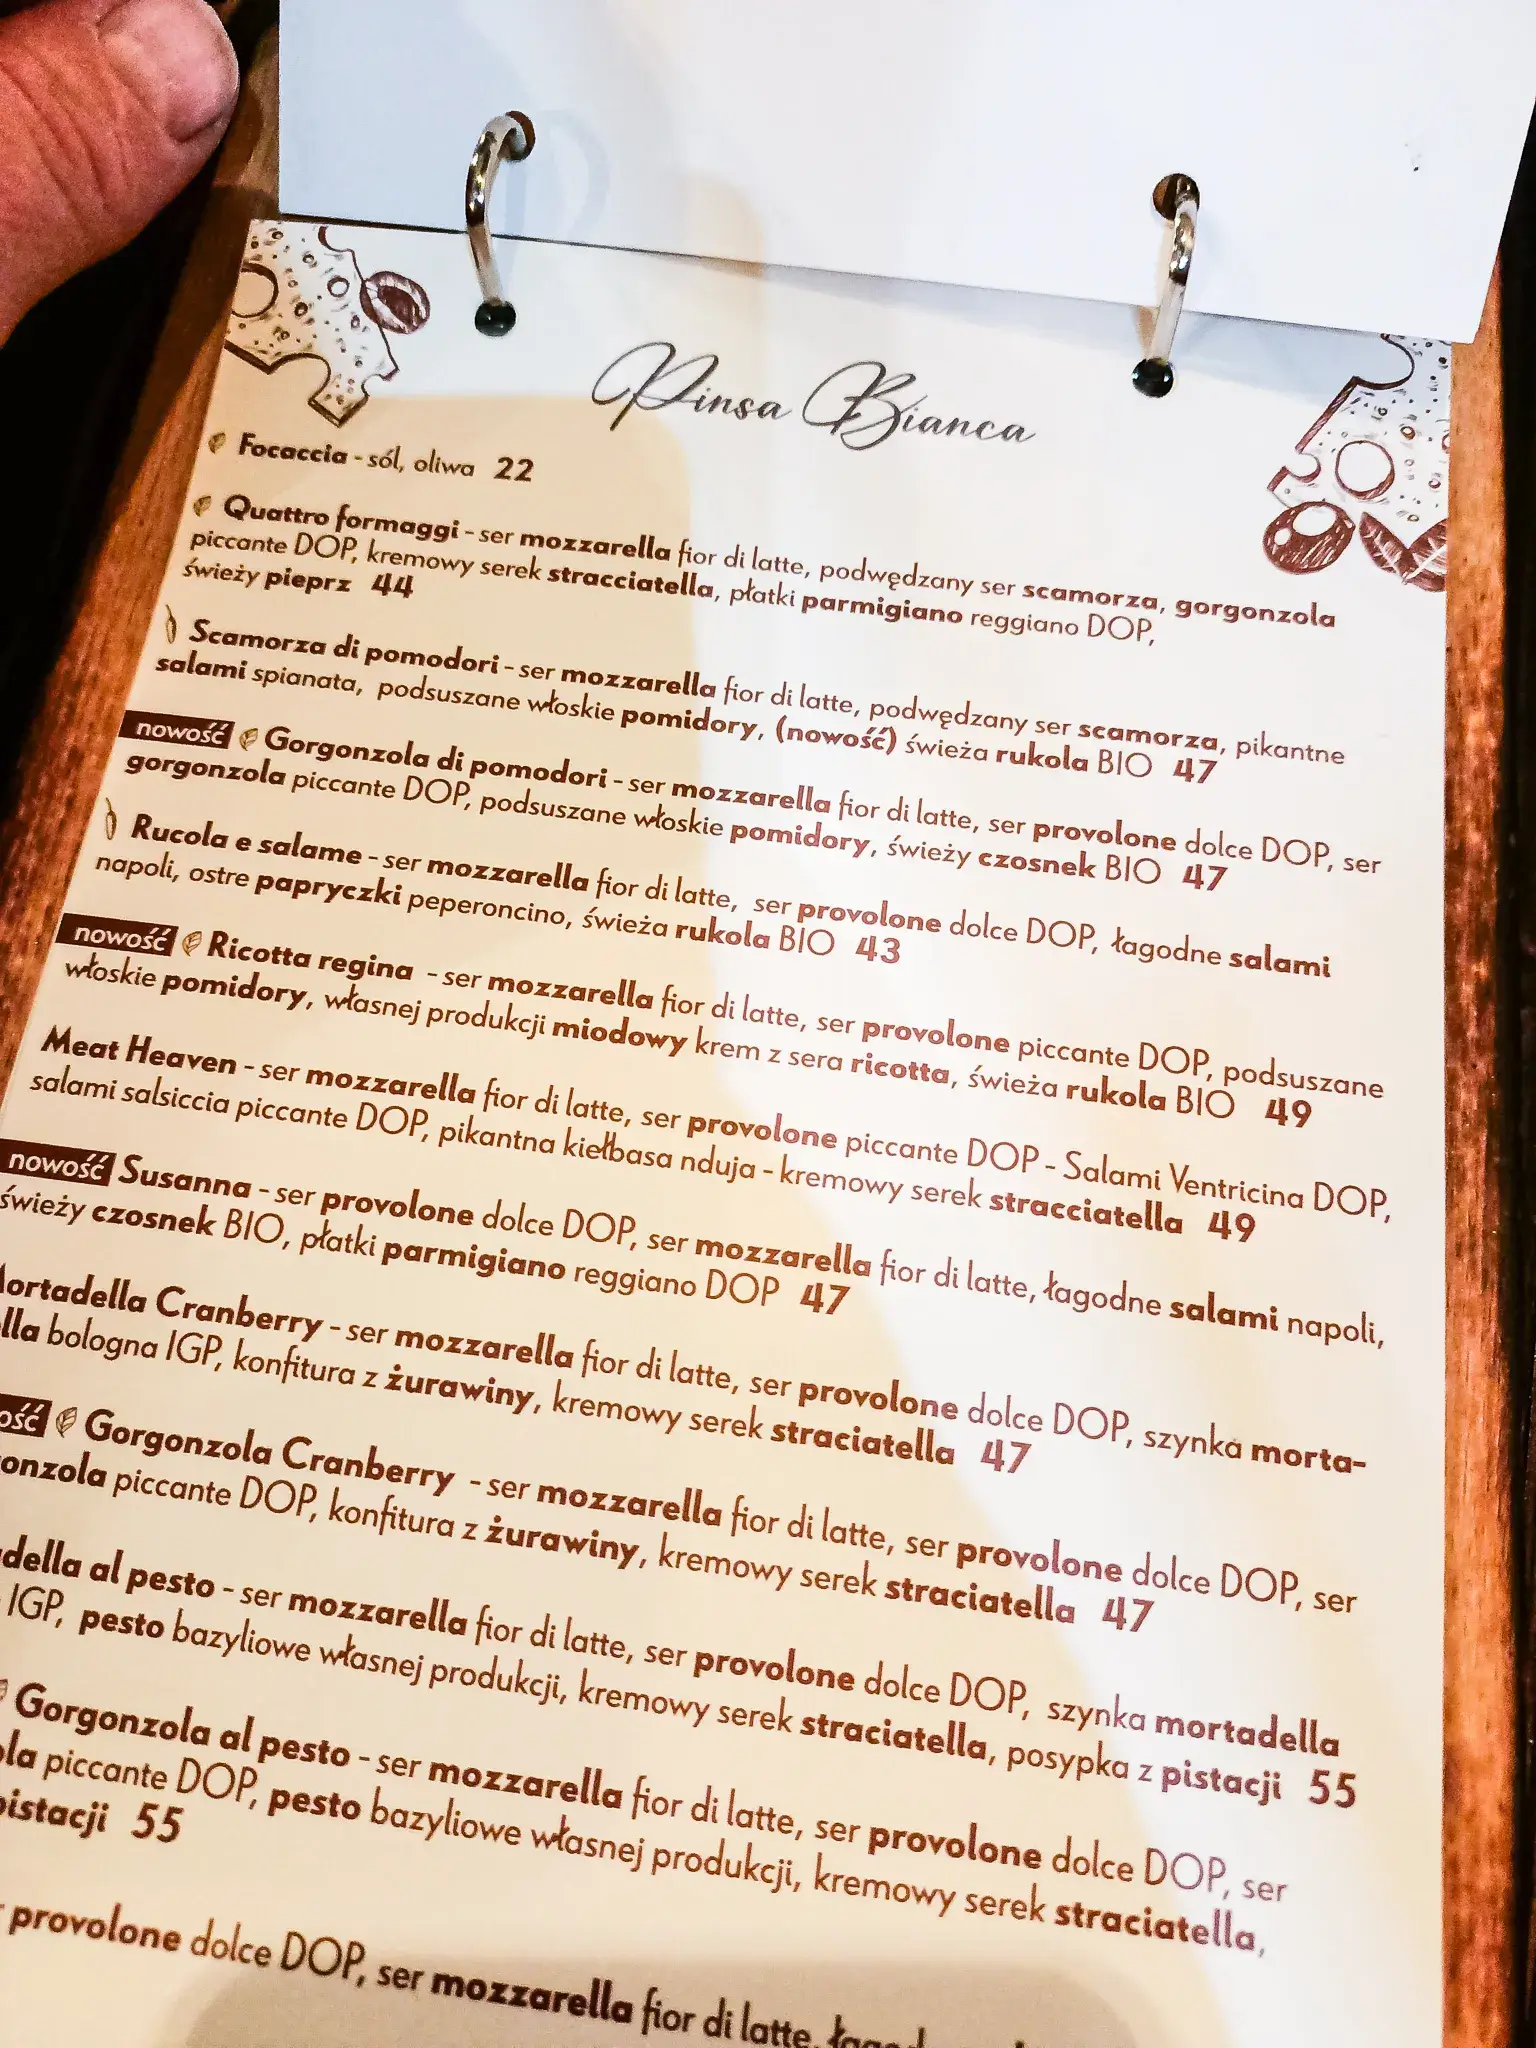 Pinsa Bianca
Focaccia - sól, oliwa 22
Quattro formaggi - ser mozzarella fior di latte, podwędzany ser scamorza, gorgonzola
piccante DOP, kremowy serek stracciatella, płatki parmigiano reggiano DOP,
świeży pieprz 44
Scamorza di pomodori - ser mozzarella fior di latte, podwędzany ser scamorza, pikantne
salami spianata, podsuszane włoskie pomidory, (nowość) świeża rukola BIO 47
nowość Gorgonzola di pomodori - ser mozzarella fior di latte, ser provolone dolce DOP, ser
gorgonzola piccante DOP, podsuszane włoskie pomidory, świeży czosnek BIO 47
Rucola e salame - ser mozzarella fior di latte, ser provolone dolce DOP, łagodne salami
napoli, ostre papryczki peperoncino, świeża rukola BIO 43
nowość Ricotta regina - ser mozzarella fior di latte, ser provolone piccante DOP, podsuszane
włoskie pomidory, własnej produkcji miodowy krem z sera ricotta, świeża rukola BIO 49
Meat Heaven - ser mozzarella fior di latte, ser provolone piccante DOP - Salami Ventricina DOP,
salami salsiccia piccante DOP, pikantna kiełbasa nduja - kremowy serek stracciatella 49
nowość Susanna - ser provolone dolce DOP, ser mozzarella fior di latte, łagodne salami napoli,
świeży czosnek BIO, płatki parmigiano reggiano DOP 47
ortadella Cranberry - ser mozzarella fior di latte, ser provolone dolce DOP, szynka morta-
lla bologna IGP, konfitura z żurawiny, kremowy serek straciatella 47
ość Gorgonzola Cranberry - ser mozzarella fior di latte, ser provolone dolce DOP, ser
onzola piccante DOP, konfitura z żurawiny, kremowy serek straciatella 47
della al pesto - ser mozzarella fior di latte, ser provolone dolce DOP, szynka mortadella
IGP, pesto bazyliowe własnej produkcji, kremowy serek straciatella, posypka z pistacji 55
Gorgonzola al pesto - ser mozzarella fior di latte, ser provolone dolce DOP, ser
la piccante DOP, pesto bazyliowe własnej produkcji, kremowy serek straciatella,
pistacji 55
provolone dolce DOP, ser mozzarella fior di latte,